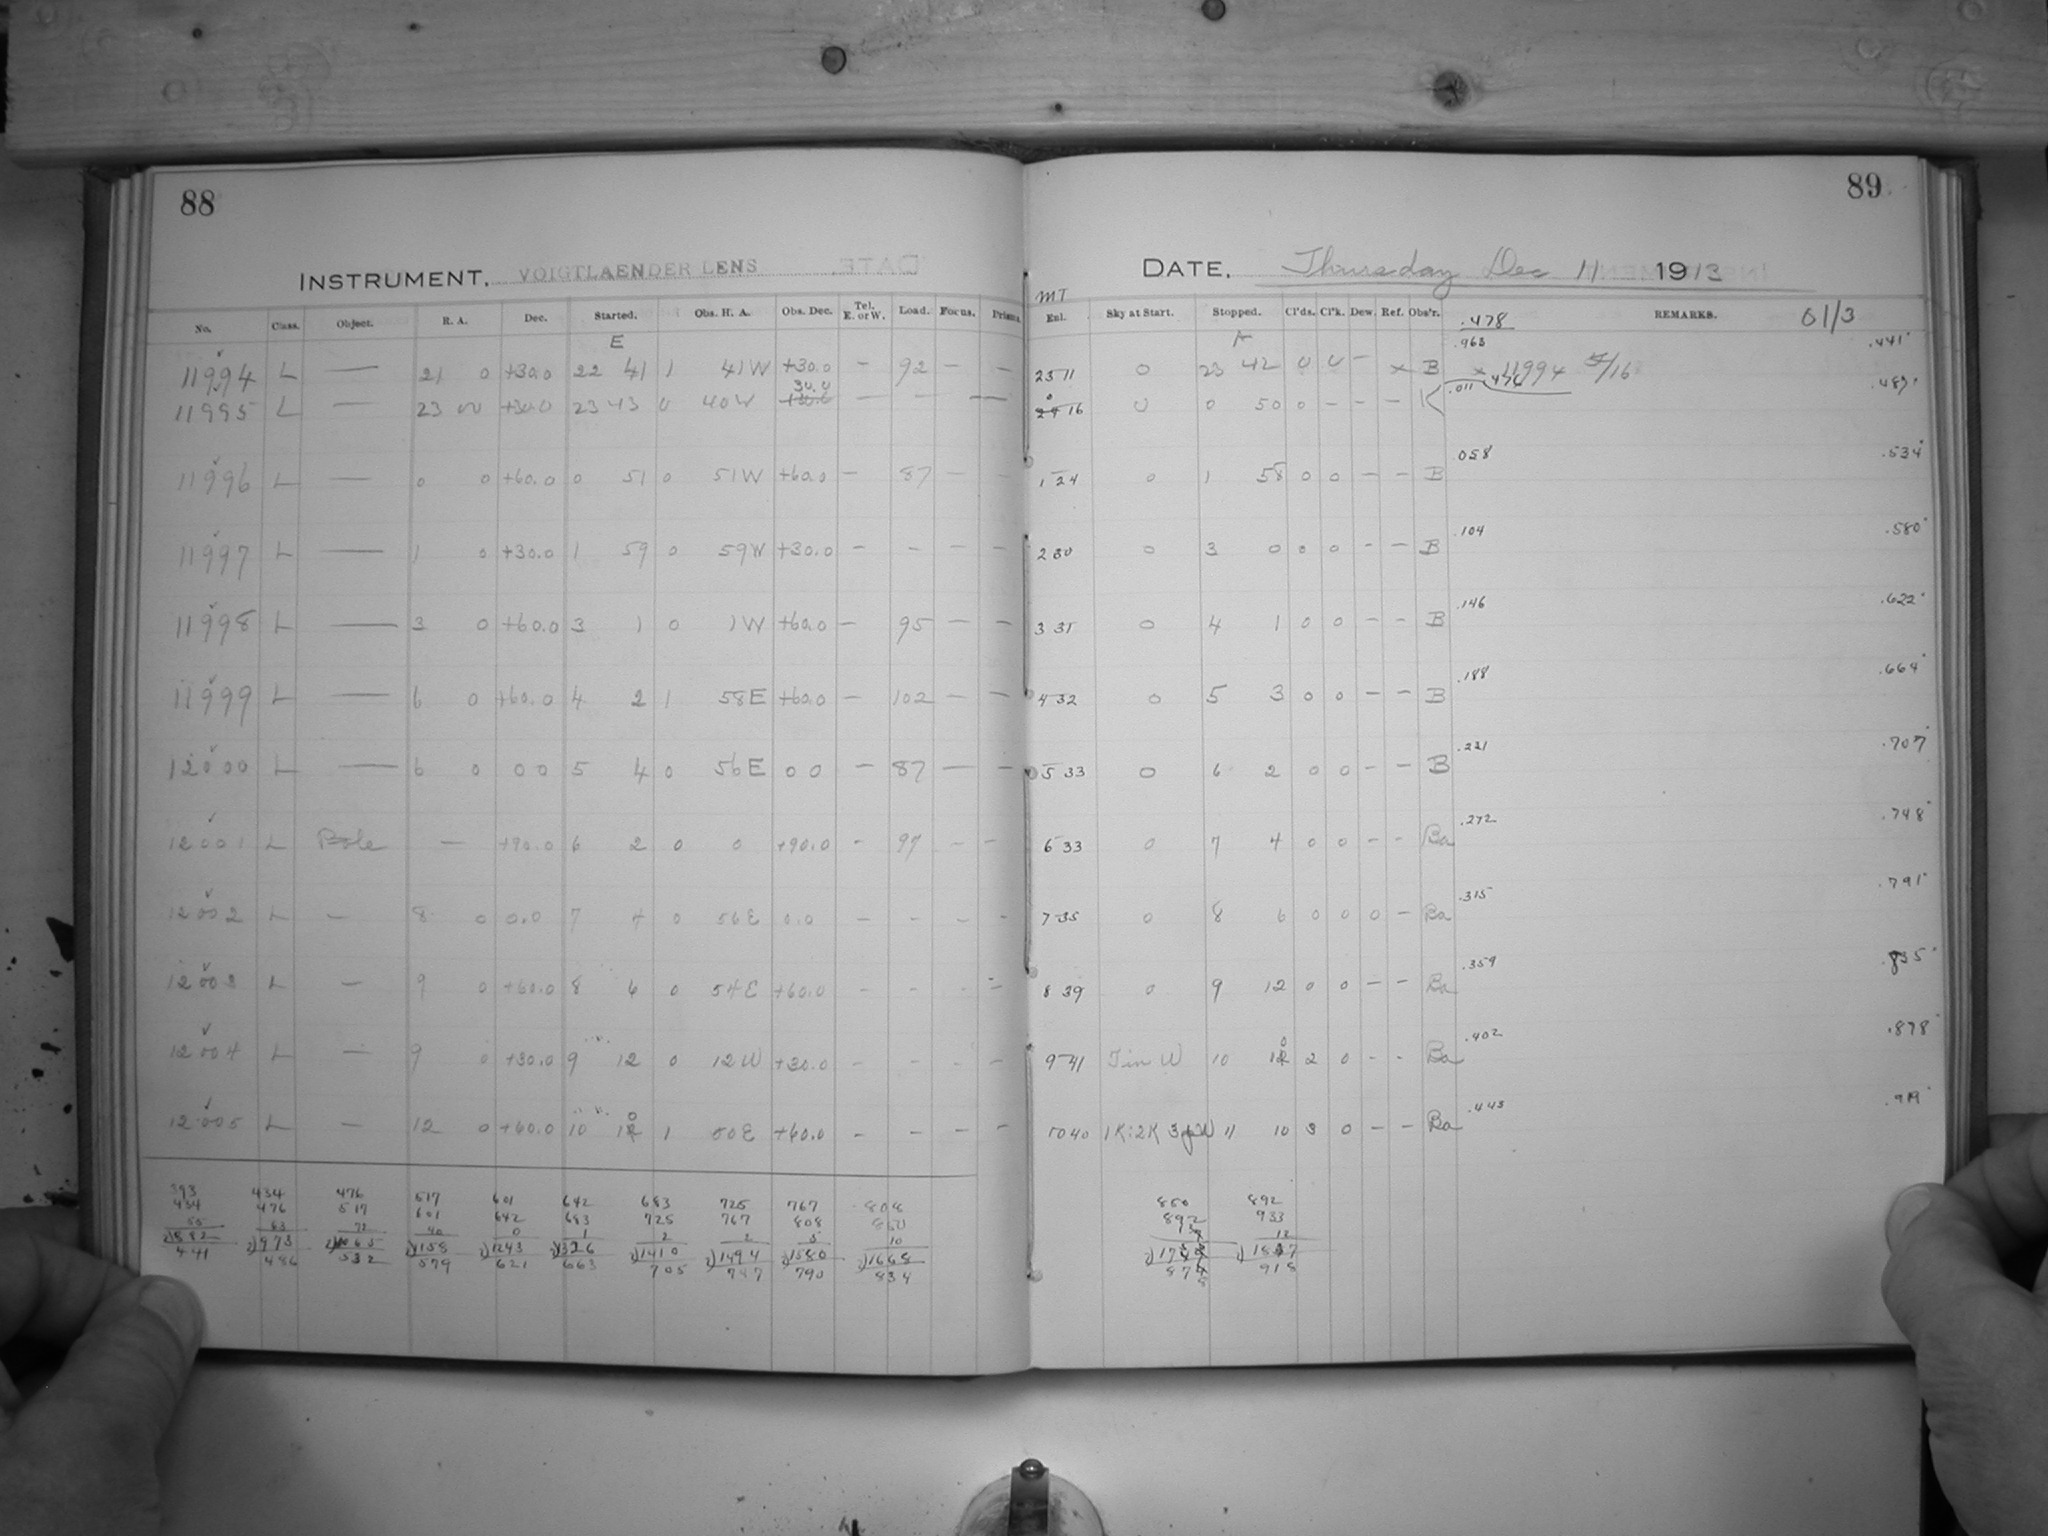 88
INSTRUMENT. VOIGTLAENDER LENS
No. Class. Object. R. A. Dec. Started. Obs. H. A. Obs. Dec. Tel. E. or W. Load. Focus. Prisms.
E
11994 L — 21 0 +30.0 22 41 1 41W +30.0 — 92 — —
30.0
11995 L — 23 0 +30.0 23 43 0 40W +30.0 — — — —
11996 L — 0 0 +60.0 0 51 0 51W +60.0 — 87 — —
11997 L — 1 0 +30.0 1 59 0 59W +30.0 — — — —
11998 L — 3 0 +60.0 3 1 0 1W +60.0 — 95 — —
11999 L — 6 0 +60.0 4 2 1 58E +60.0 — 102 — —
12000 L — 6 0 0 0 5 4 0 56E 0 0 — 87 — —
12001 L Pole — +90.0 6 2 0 0 +90.0 — 97 — —
12002 L — 8 0 0.0 7 4 0 56E 0.0 — — — —
12003 L — 9 0 +60.0 8 6 0 54E +60.0 — — — —
12004 L — 9 0 +30.0 9 12 0 12W +30.0 — — — —
12005 L — 12 0 +60.0 10 10 1 50E +60.0 — — — —
393 434 476 517 601 642 683 725 767 808
434 476 517 601 642 683 725 767 808 850
55 63 72 40 0 1 2 2 5 10
882 973 1065 1158 1243 1326 1410 1494 1580 1668
441 486 532 579 621 663 705 747 790 834
89
DATE. Thursday Dec 11 1913
MT
Exl. Sky at Start. Stopped. Cl'ds. Cl'k. Dew. Ref. Obs'r. .478 REMARKS. 01/3
.963 .441
23 11 0 23 42 0 0 — x B x 11994 5/16
.011 .476 .487
0 16 0 0 50 0 — — — K
.058 .534
1 24 0 1 58 0 0 — — B
.104 .580
2 30 0 3 0 0 0 — — B
.146 .622
3 31 0 4 1 0 0 — — B
.188 .664
4 32 0 5 3 0 0 — — B
.231 .707
5 33 0 6 2 0 0 — — B
.272 .748
6 33 0 7 4 0 0 — — Ba
.315 .791
7 35 0 8 6 0 0 0 — Ba
.359 .835
8 39 0 9 12 0 0 — — Ba
.402 .878
9 41 1 in W 10 10 2 0 — — Ba
.443 .919
10 40 1K:2K 3 W 11 10 3 0 — — Ba
850 892
892 933
12
1837
918